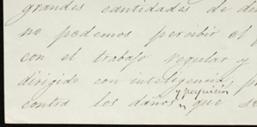 grandes cantidades de
no podemos percibir el
con el trabajo regular y
dirigido con inteligencia
y
contra los daños que